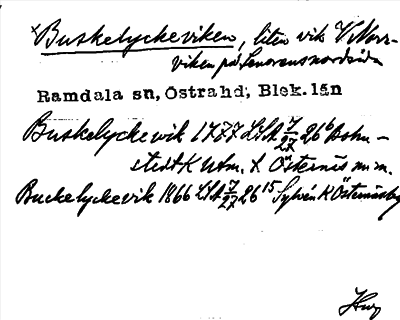 Buskelyckeviken, liten vik V Norr-
viken på Senorens nordsida
Ramdala sn, Östra hd, Blek. län
Buskelycke wik 1777 LSA 7/27 26⁶ Bohm-
stedt K Utm. t Östernäs m.m.
Buckelycke vik 1866 LSA 7/27 26¹⁵ Sylvén K Östernäs by